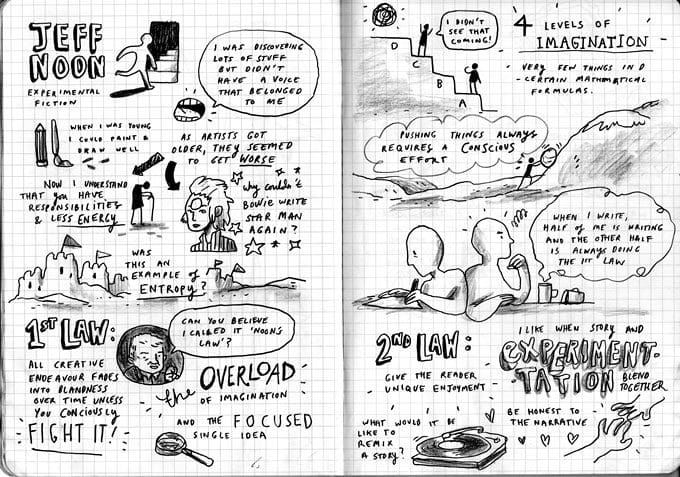 JEFF
NOON
EXPERIMENTAL
FICTION
I WAS DISCOVERING
LOTS OF STUFF
BUT DIDN'T
HAVE A VOICE
THAT BELONGED
TO ME
WHEN I WAS YOUNG
I COULD PAINT &
DRAW WELL
AS ARTISTS GOT
OLDER, THEY SEEMED
TO GET WORSE
NOW I UNDERSTAND
THAT YOU HAVE
RESPONSIBILITIES
& LESS ENERGY
WHY COULDN'T
BOWIE WRITE
STAR MAN
AGAIN?
WAS
THIS AN
EXAMPLE of
ENTROPY?
1ST LAW:
ALL CREATIVE
ENDEAVOUR FADES
INTO BLANDNESS
OVER TIME UNLESS
YOU CONCIOUSLY
FIGHT IT!
CAN YOU BELIEVE
I CALLED IT 'NOON'S
LAW'?
the OVERLOAD
OF IMAGINATION
AND THE FOCUSED
SINGLE IDEA
I DIDN'T
SEE THAT
COMING!
D
C
B
A
4 LEVELS OF
IMAGINATION
VERY FEW THINGS IN D
- CERTAIN MATHEMATICAL
FORMULAS.
PUSHING THINGS ALWAYS
REQUIRES A CONSCIOUS
EFFORT
WHEN I WRITE,
HALF OF ME IS WRITING
AND THE OTHER HALF
IS ALWAYS DOING
THE 1ST LAW
2ND LAW:
GIVE THE READER
UNIQUE ENJOYMENT
I LIKE WHEN STORY AND
EXPERIMENT-
TATION BLEND
TOGETHER
WHAT WOULD IT BE
LIKE TO
REMIX
A STORY?
BE HONEST TO
THE NARRATIVE